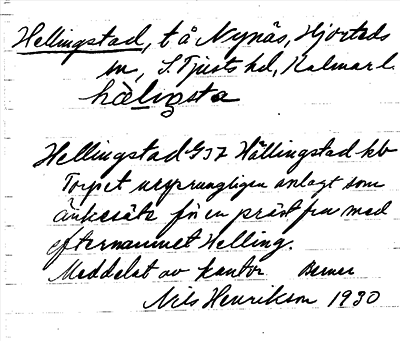 Hellingstad, t å Nynäs, Hjorteds
sn, S. Tjusts hd, Kalmar l.
hälingsta
Hellingstad G 37 Hällingstad kb
Torpet ursprungligen anlagt som
änkesäte för en präst fru med
efternamnet Helling.
Meddelat av kantor Berner
Nils Henrikson 1930